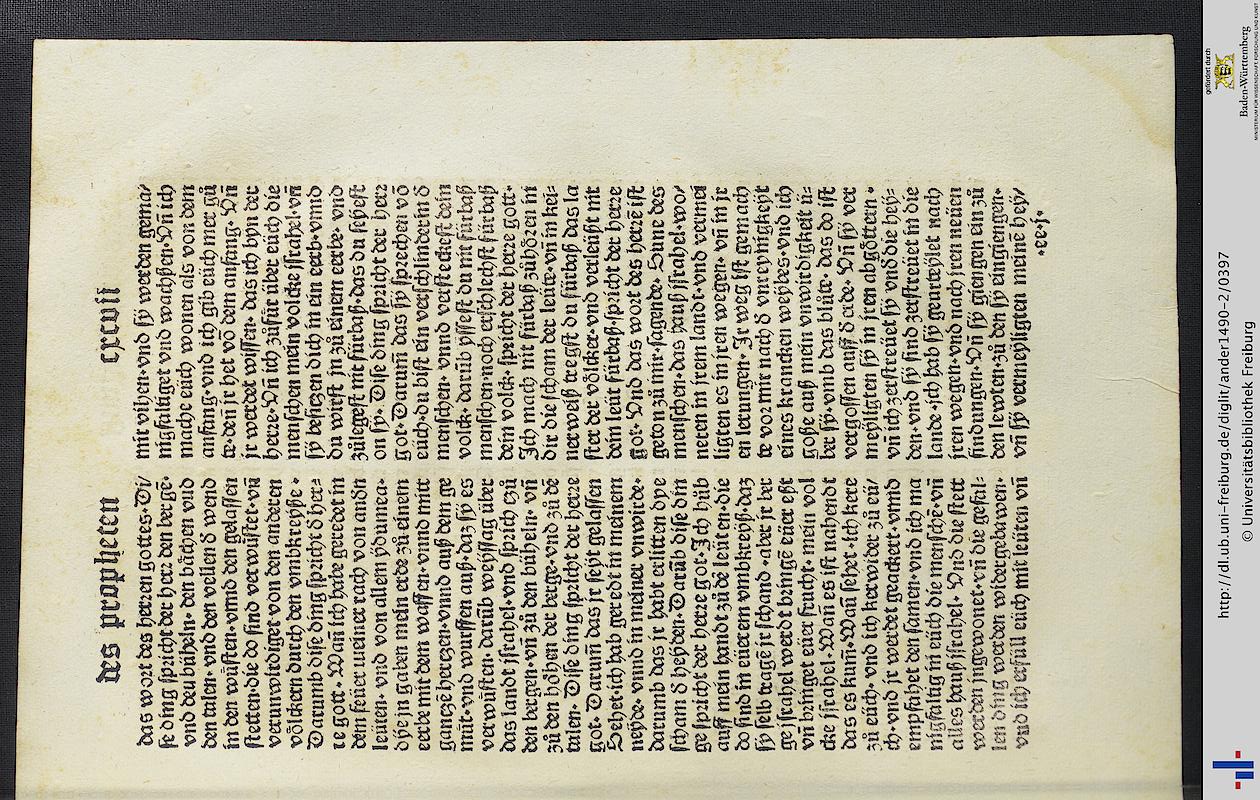 des propheten
cxcvii
das wort des herren gottes. Di/
se ding spricht der herr den berge·
vnd den bühelń· den bächen vnd
den talen· vnd den vellen d̕ wend
in den wüsten· vnnd den gelassen
stetten· die do sind verwüstet· vñ
verunwirdiget von den anderen
völckern durch den vmbkreysse·
Darumb dise ding spricht d̕ her=
re gott· Wañ ich habe geredet in
dem feüer meiner rach von andn̄
leüten· vnd von allem ydumea·
dye in gaben mein erde zů einem
erbe mit dem waffen vnnd mitt
gantzē hertzen· vnnd auß dem ge
můt· vnd wurffen auß· daz sy es
verwüsten· darūb weyssag über
das landt israhel· vnd sprich zů
den bergen· vñ zů den büheln· vñ
zů den höhen der berge· vnd zů dē
talen· Dise ding spricht der herre
got· Darum̄ das ir seyt gelassen
Sehet· ich hab geredt in meinem
neyde· vnnd in meiner vnwirde·
darumb das jr habt erlitten dye
scham d̕ heyden· Darūb dise din
ge spricht der herre got· Ich hůb
auff mein hanot zů dē leüten· die
do sind in eüerem vmbkreyß· daz
sy selb tragē jr schand· aber jr ber
ge israhel werd bringē eüer est
vñ bringet eüer frucht· mein vol
cke israhel· Wañ es ist nahendt
das es kum̄· Wañ sehet· ich kere
zů eüch· vnd ich kerwider zů eü/
ch· vnd jr werdet geackert· vnnd
empfahet den samen· vnd ich ma
nigfaltig in eüch die mensche· vñ
alles hauß israhel· Vnd die stett
werden jngewonet· vñ die gefal
len ding werden widergebawen·
vnd ich erfüll eüch mit leüten vñ
mit vihen· vnd sy werden gema/
nigfaltiget vnd wachssen· Vñ ich
mache eüch wonen als von dem
anfang· vnd ich gib eüch mer gů
te· deñ jr het vō dem anfang· Vñ
jr werdet wissen· das ich byn der
herre· Vñ ich zůfür über eüch die
menschen mein volcke israhel· vñ
sy besitzen dich in ein eerb· vnnd
du wirst in zů einem erbe· vnd
zůlegest mt fürbaß· das du seyest
on sy· Dise ding spricht der herr
got· Darum̄ das sy sprechen vō
eüch· du bist ein verschlinderin d̕
menschen· vnnd versteckest dein
volck· darūb yssest du mt fürbaß
menschen· noch erschlechst fürbaß
dein volck· spricht der herre gott·
Ich mach mt fürbaß zůhören in
dir die scham der leüte· vñ in kei=
nerweiß tregst du fürbaß das la
ster der völcker· vnd verleüst mt
dein leüt fürbaß· spricht der herre
got· Vnd das wort des herrē ist
geton zů mir· sagende· Sune des
menschen· das hauß israhel· wo/
neten in jrem landt· vnd vermei
ligten es in iren wegen· vñ in jr
en lernungen· Ir weg ist gemach
te vor mir nach d̕ vnreynigkeyt
eines krancken weybes· vnd ich
goße auß mein vnwirdigkeit ü=
ber sy· vmb das blůt· das do ist
vergossen auff d̕ erde· Vñ sy ver
meyligten sy in jren abgöttern·
vñ ich zerstreüet sy vnd̕ die hey=
den· vnd sy sind zerstreüet in die
lande· ich hab sy geurteylet nach
jren wegen· vnd nach jren neüen
findungen· Vñ sy giengen ein zů
den leüten· zů den sy eingiengen·
vñ sy vermeyligten meinē hey/
·ee·j·
gefördert durch
Baden-Württemberg
MINISTERIUM FÜR WISSENSCHAFT, FORSCHUNG UND KUNST
http://dl.ub.uni-freiburg.de/diglit/ander1490-2/0397
© Universitätsbibliothek Freiburg